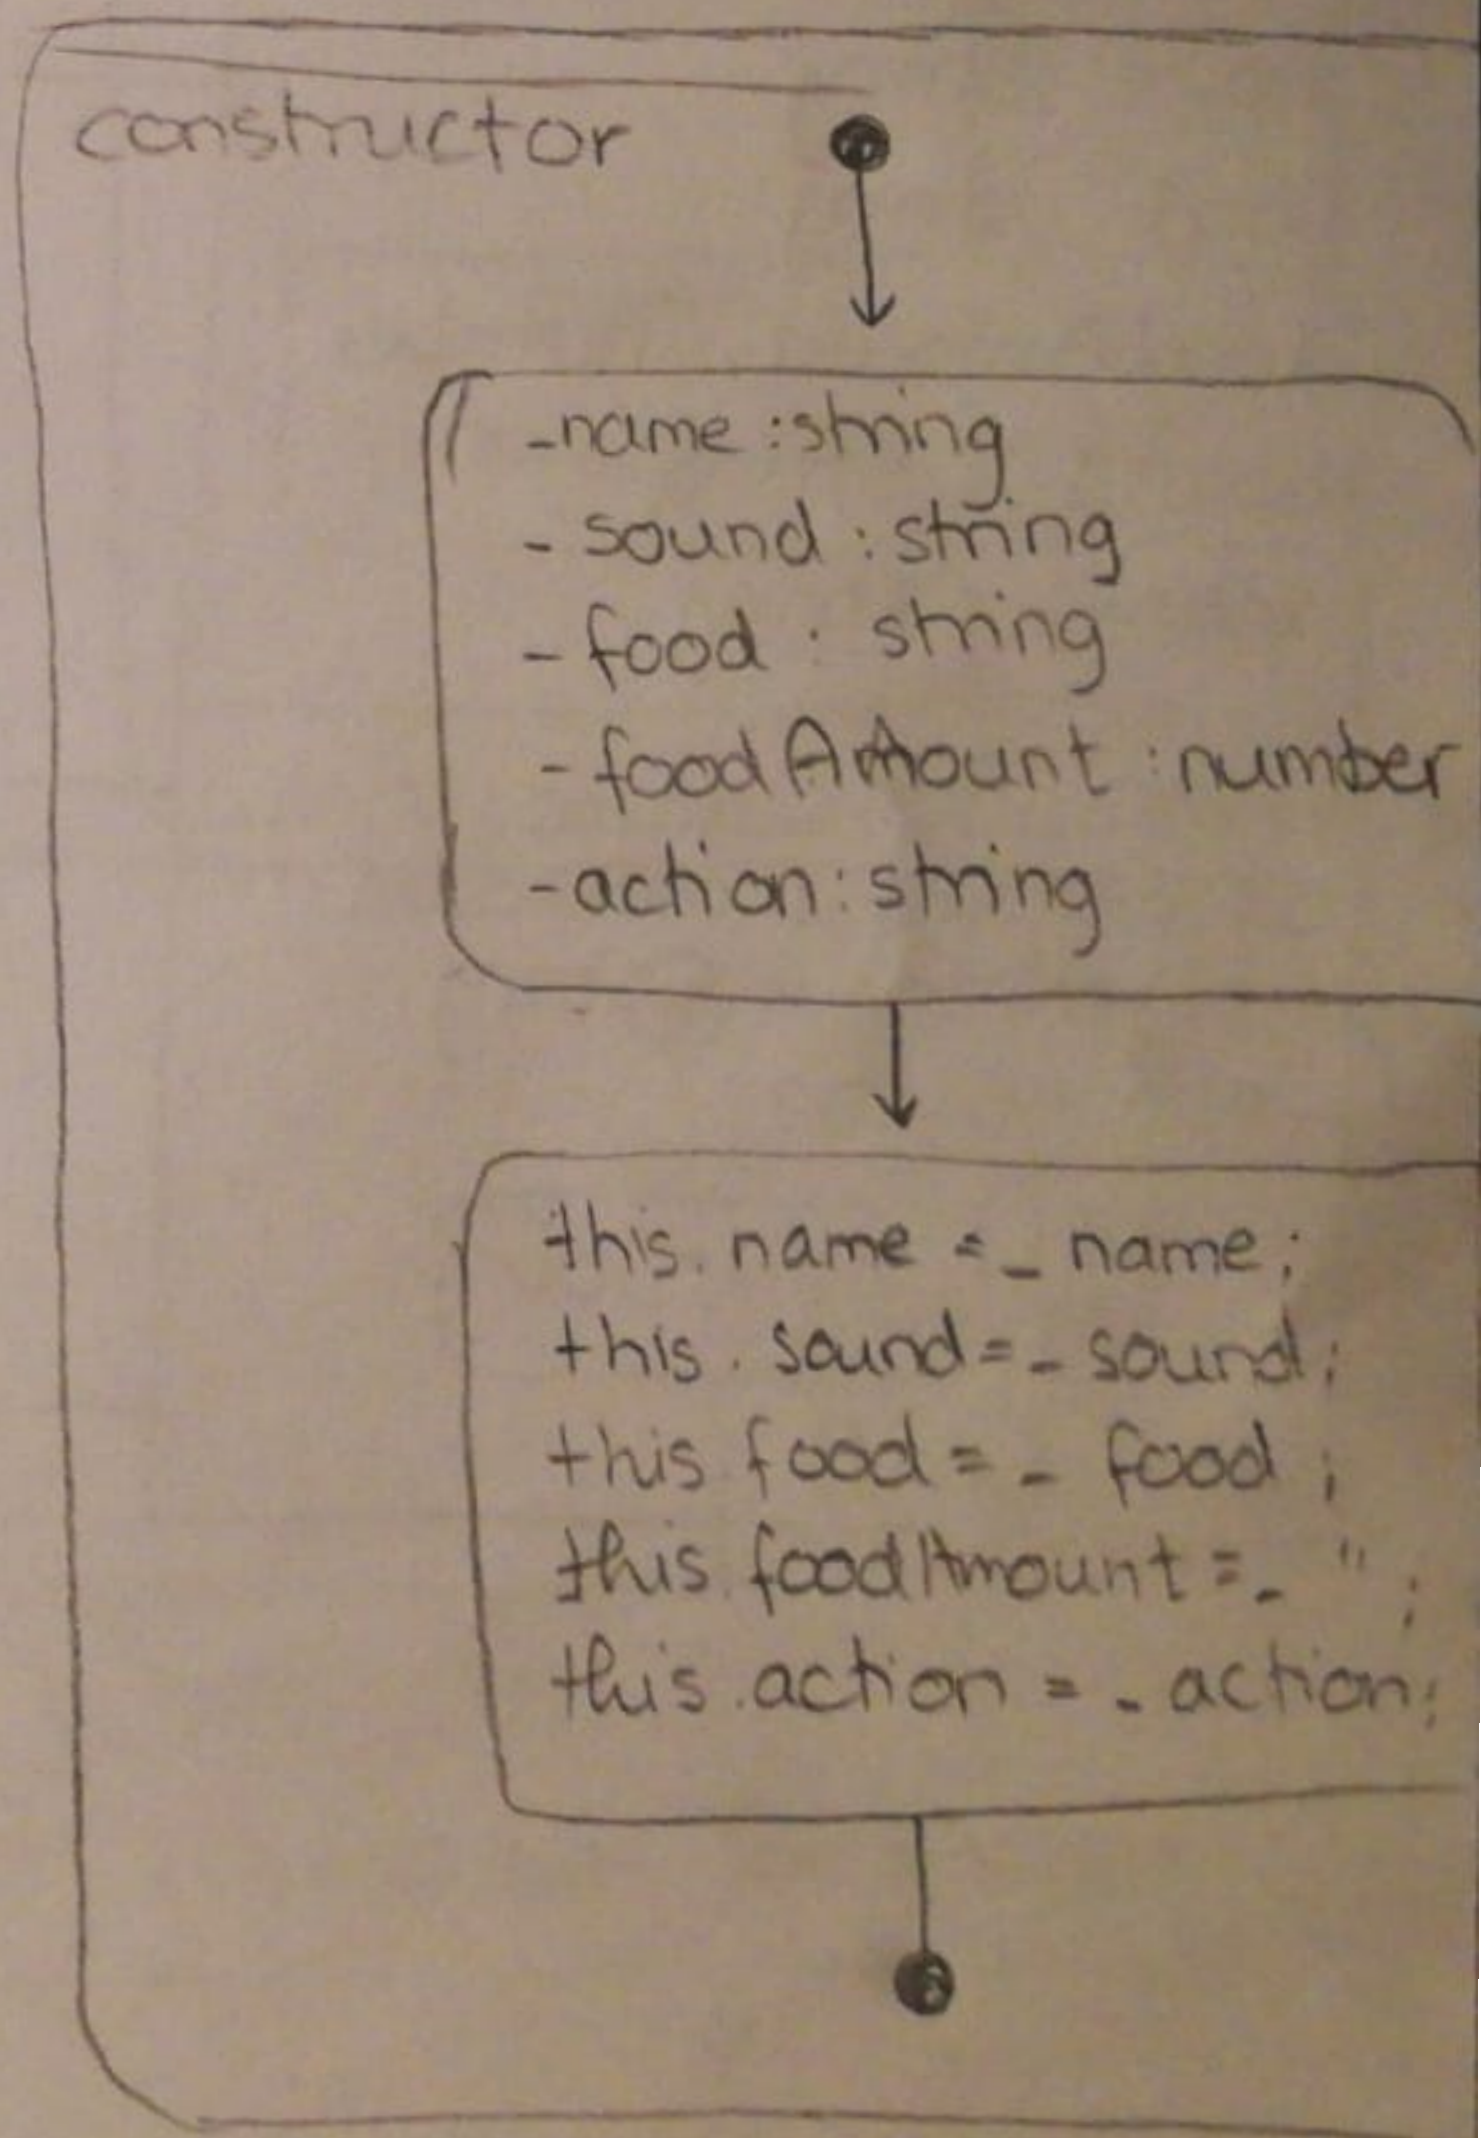 constructor
_name :string
_ sound : string
_ food : string
_ foodAmount : number
_action : string
this. name = _ name;
this. sound = _ sound;
this food = _ food ;
this. foodAmount = _ " ;
this. action = _ action;